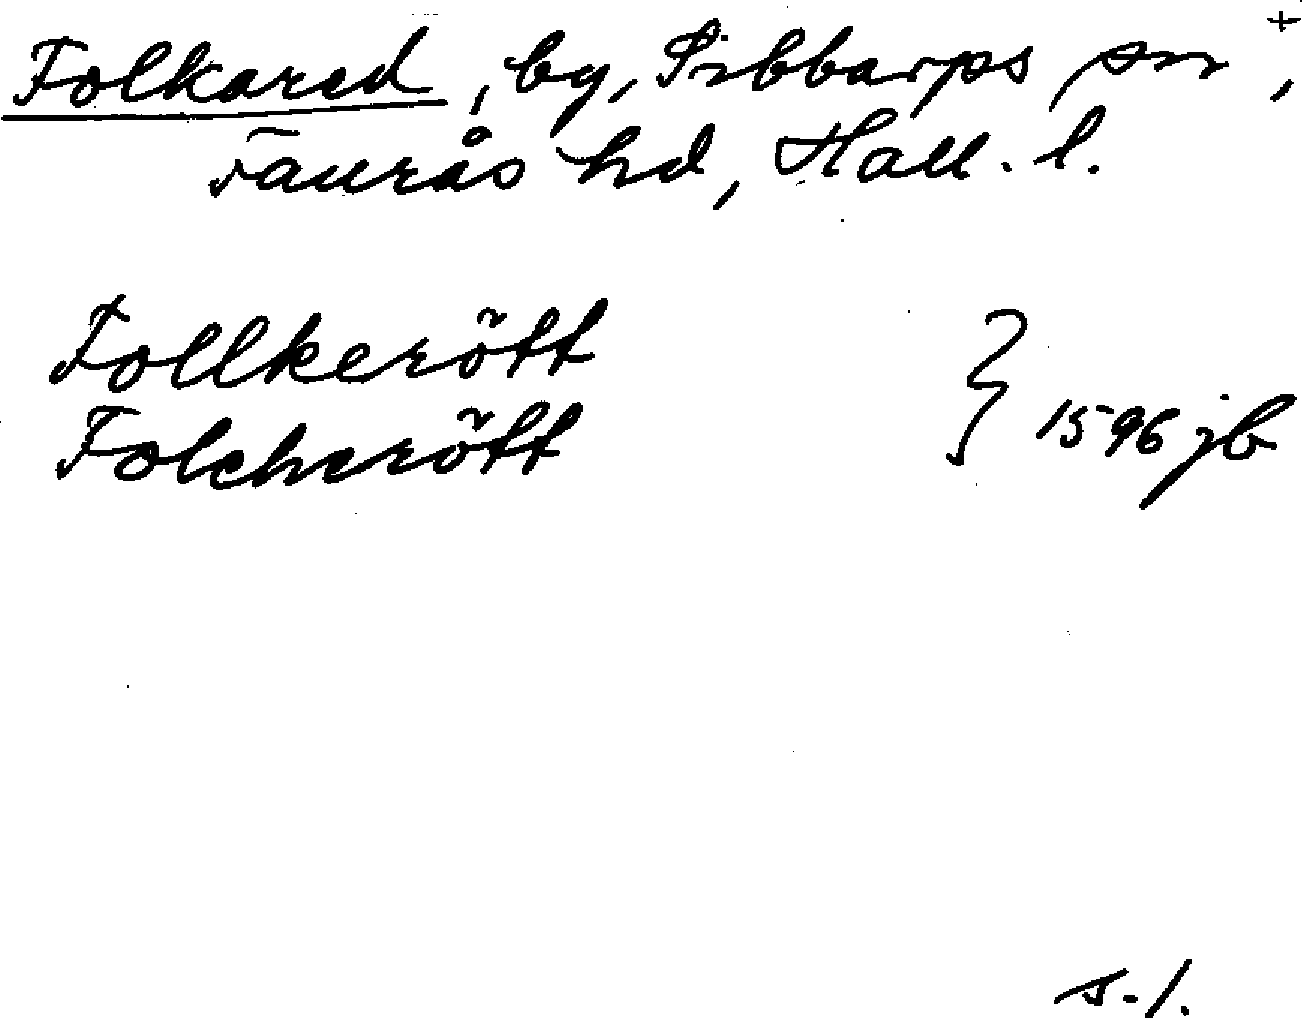 Folkared, by, Sibbarps sn, +
Faurås hd, Hall. l.
Follkerött
Folcherött } 1596 jb
s. 1.